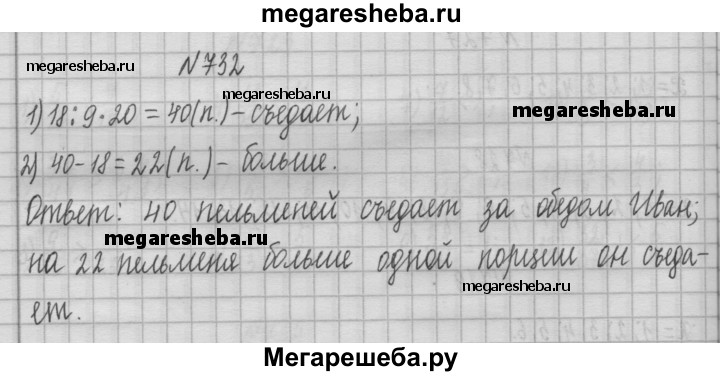 megaresheba.ru
megaresheba.ru
N 732
megaresheba.ru
1) 18:9·20=40(п.)-съедает;
megaresheba.ru
2) 40-18=22(п.)- больше.
Ответ: 40 пельменей съедает за обедом Иван;
megaresheba.ru
на 22 пельменя больше одной порции он съеда-
megaresheba.ru
ет.
Мегарешеба.ру